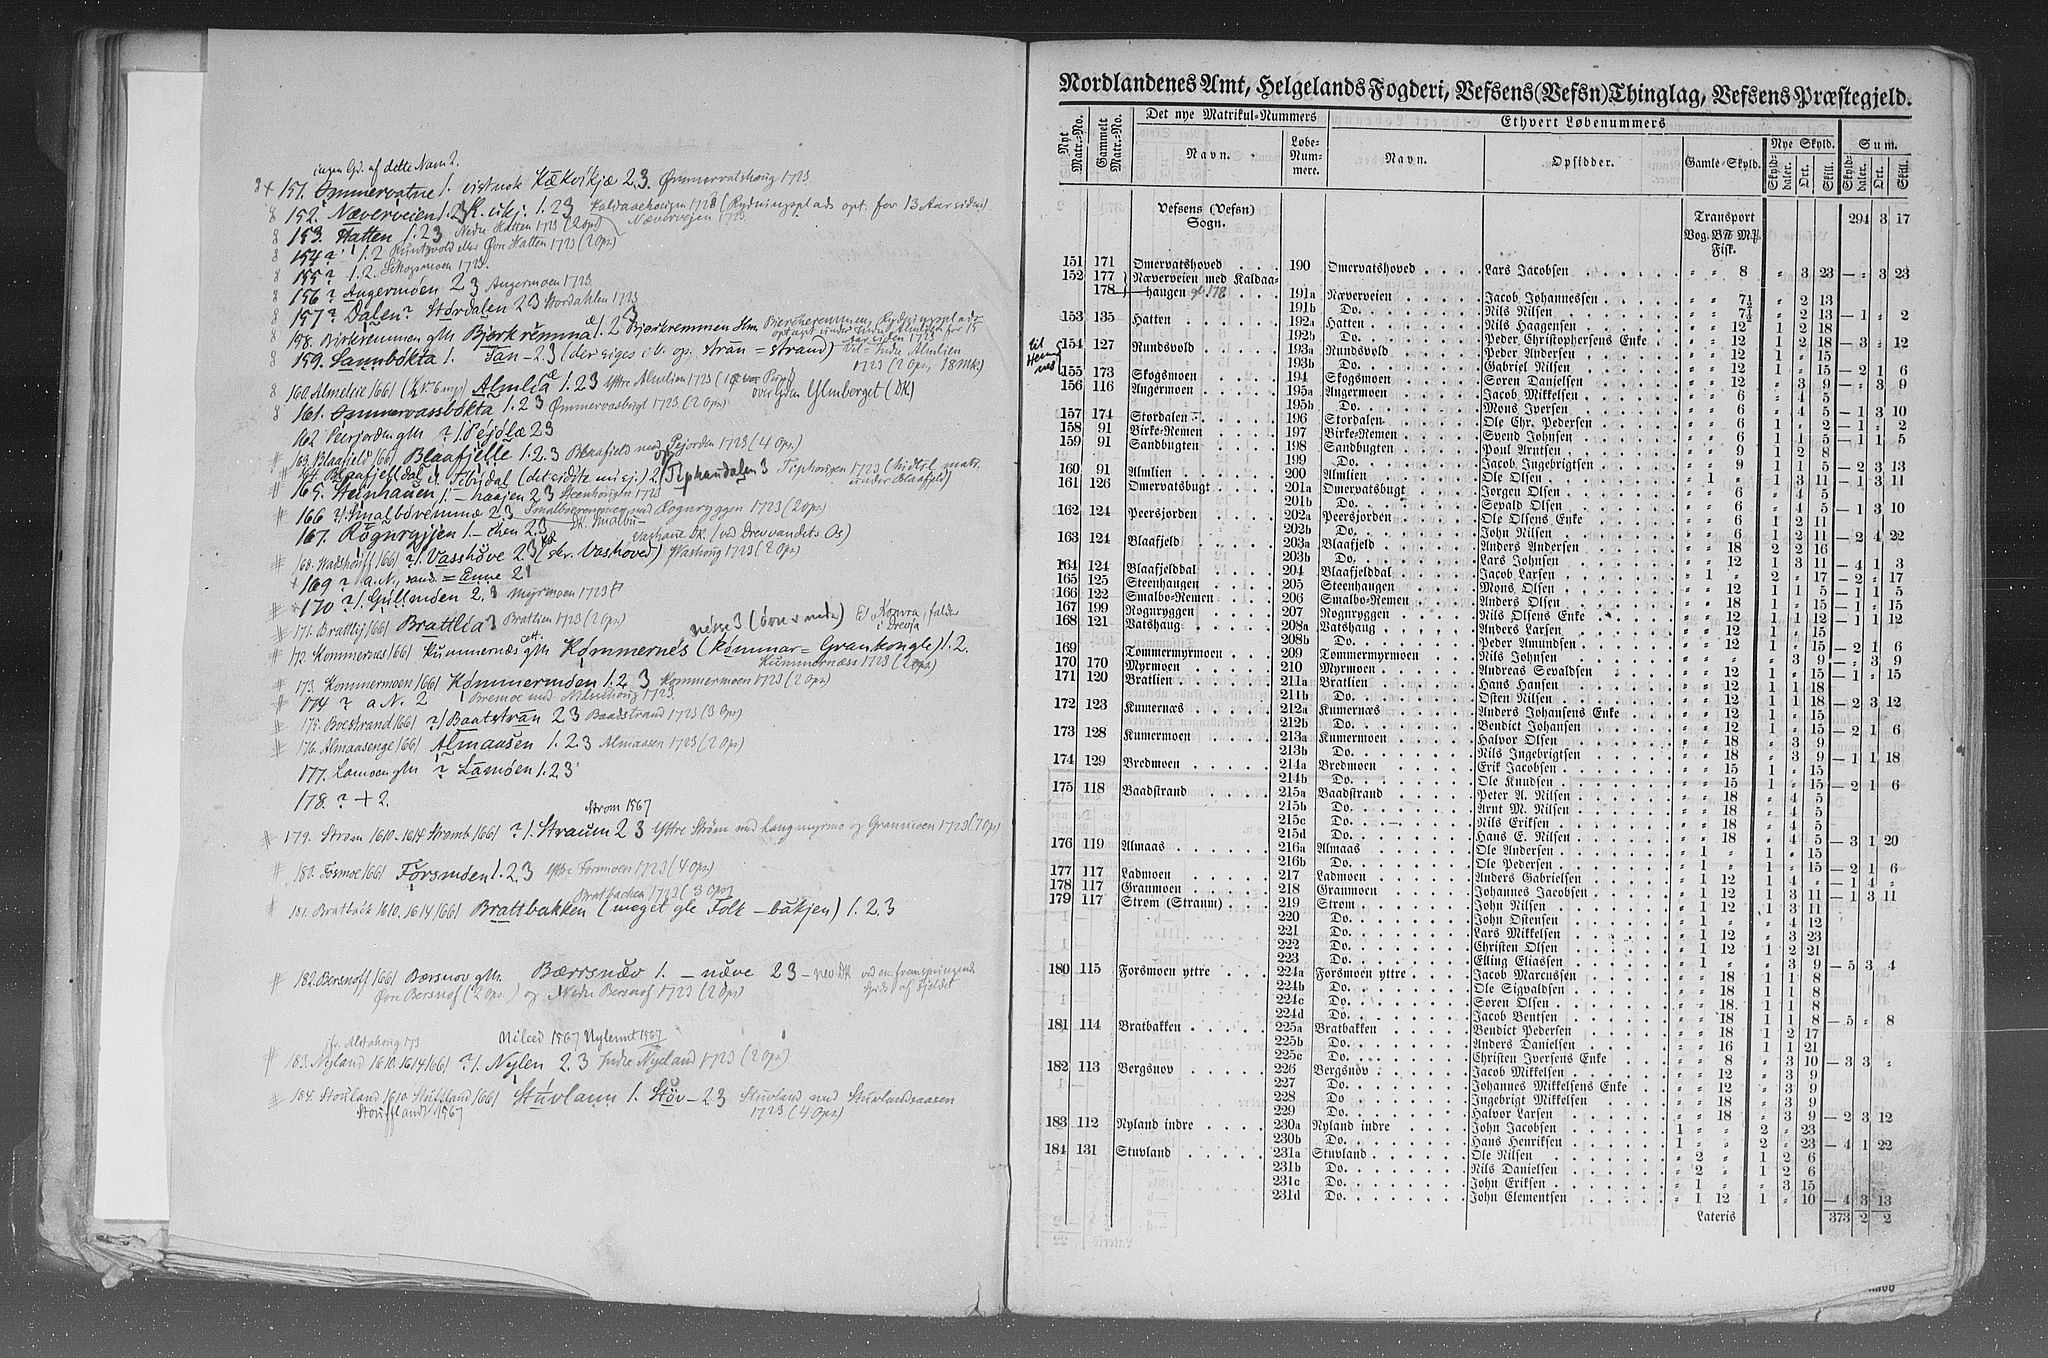 ingen Gd. af dette Navn 2.
8 + 151. Ømmervatne 1. vistnok Kækvikjæ 2.3. Ømmervatshoug 1723
8 152. Næverveien 1.2 K. vikj. 1.23 Kaldaaehougen 1723 (Rydningsplads opt. for 13 Aar siden)
8 153. Hatten 1.23 Nedre Hatten 1723 (2 Ops) Nævervejen 1723
8 154 ? 1.2 Runtzvold eller Øvre Hatten 1723 (2 Ops.)
8 155 ? 1.2. Skogsmoen 1723.
8 156 ? Angermoen 23 Angermoen 1723
8 157 ? Dalen ? Størdalen 23 Stordahlen 1723
8 158. Birkremmen gM. Bjørkremmæ 1.2
8 159. Sannbokta 1. San - 23 (der siges i V. op. strån = strand)
8 160. Almelie 1661 Almlia 1.23 Yttre Almlien 1723
8 161. Ømmervassbokta 1.23 Ømmervasbugt 1723 (2 Ops)
162 Peersjorden gM ? 1. Pejola 23
# 163. Blaafield 1661 Blaafjelle 1.2.3 Blaafield med Pejorden 1723 (4 Ops.)
# 164. Blaafjelldal
# 165. Steinhauen 1 - haajen 23 Steenhougen 1723
# 166 ? 1. Smalbovemmæ 23 Smalboeremmen med Rognryggen 1723 (2 Ops)
167. Rognryjjen 1 - ehen 2.3
# 168. 1661 ? 1. Vasshøve 2.3 (skr. Vashoved) Vashoug 1723 (2 Ops)
+ 169 ? a. N., sand. = Enne 21
# + 170 ? 1. Grillmoen 2.3 Myrmoen 1723
# 171. Brattlij 1661 Brattlia 3 Brattlien 1723 (2 Ops)
# 172. Kommernes 1661 Kummernæs gM Kømmernes (kømmar = Grankongle) 1.2.
Kummernæss 1723 (2 Ops)
# 173. Kommermoen 1661 Kømmermoen 1.2 3 Kommermoen 1723 (2 Ops)
# 174 ? a. N. 2 Bremoe med Melushoug 1723
# 175. Boestrand 1661 ? 1. Baatstrån 23 Baadstrand 1723 (3 Ops)
# 176. Almaasenge 1661 Almaasen 1.23 Almaasen 1723 (2 Ops)
177. Lamoen gM ? Lamoen 1.23
178. ? + 2.
Strøm 1567
# 179. Strøm 1610-1614 Stromb 1661 ? 1. Straum 23 Yttre Strøm med Langmyrmo og Granmoen 1723 (7 Ops)
# 180. Forsmoe 1661 Forsmoen 1.2.3 Yttre Forsmoen 1723 (4 Ops)
Bratbachen 1723 (3 Ops)
# 181. Bratback 1610. 1614 1661 Brattbakken (meget gle Folk - båkjen) 1.2.3
# 182. Bersnoff 1661 Bersnov gM. Bærrsnæv 1. - næve 23 - nev DK ved en fremspringende
Øvre Bersnof (2 Ops.) og Nedre Bersnof 1723 (2 Ops) Spids af Fjeldet
Nilced 1567 Nylennt 1567
# 183. Nyland 1610. 1614 1661 ? 1. Nylen 2.3 Indre Nyeland 1723 (2 Ops)
# 184. Stouland 1610. Stuffland 1661 Stuvlann 1. Støv - 23 Stuvland med Stuvlandsaasen
Stouffland 1567 1723 (4 Ops)
Nordlandenes Amt, Helgelands Fogderi, Vefsens (Vefsn) Thinglag, Vefsens Præstegjeld.
Nyt Matr.-No. Gammelt Matr.-No. Det nye Matrikul-Nummers Navn. Løbe-Nummere. Ethvert Løbenummers Navn. Opsidder. Gamle-Skyld. Nye Skyld. Skylddaler. Ort. Skill. Sum. Skylddaler. Ort. Skill.
Vefsens (Vefsn) Sogn. Transport 294 3 17
Vog. Bℳ Mℳ Fisk.
151 171 Omervatshoved 190 Omervatshoved Lars Jacobsen " " 8 " 3 23 — " 3 23
152 177 Næverveien med Kaldaa-
178 haugen 191a Næverveien Jacob Johannessen " " 7½ " 2 13
191b Do. Nils Nilsen " " 7½ " 2 13 — 1 " 2
153 135 Hatten 192a Hatten Nils Haagensen " " 12 1 2 18
192b Do. Peder Christophersens Enke " " 12 1 2 18 — 3 " 12
154 127 Rundsvold 193a Rundsvold Peder Andersen " " 12 1 " 15
193b Do. Gabriel Nilsen " " 12 1 " 15 — 2 1 6
155 173 Skogsmoen 194 Skogsmoen Søren Danielsen " " 12 " 3 9 — " 3 9
156 116 Angermoen 195a Angermoen Jacob Mikkelsen " " 6 " 4 5
195b Do. Mons Iversen " " 6 " 4 5 — 1 3 10
157 174 Stordalen 196 Stordalen Ole Chr. Pedersen " " 6 1 " 2 — 1 " 2
158 91 Birke-Remen 197 Birke-Remen Svend Johnsen " " 6 1 1 5 — 1 1 5
159 91 Sandbugten 198 Sandbugten Poul Arntsen " " 9 1 2 8
199 Do. Jacob Ingebrigtsen " " 9 1 1 5 — 2 3 13
160 91 Almlien 200 Almlien Ole Olsen " 1 " 1 3 11 — 1 3 11
161 126 Omervatsbugt 201a Omervatsbugt Jørgen Olsen " " 6 " 4 5
201b Do. Sevald Olsen " " 6 " 4 5 — 1 3 10
162 124 Peersjorden 202a Peersjorden Ole Olsens Enke " " 6 1 2 11
202b Do. John Nilsen " " 6 1 2 11 — 2 4 22
163 124 Blaafjeld 203a Blaafjeld Anders Andersen " " 18 2 2 16
203b Do. Lars Johnsen " " 12 1 3 11 — 4 1 3
164 124 Blaafjelddal 204 Blaafjelddal Jacob Larsen " 1 " 2 " 17 — 2 " 17
165 125 Steenhaugen 205 Steenhaugen Mons Olsen " " 12 1 1 5 — 1 1 5
166 122 Smalbo-Remen 206 Smalbo-Remen Anders Olsen " " 18 1 " 15 — 1 " 15
167 199 Rognryggen 207 Rognryggen Nils Olsens Enke " " 12 1 1 12 — 1 1 12
168 121 Vatshaug 208a Vatshaug Anders Larsen " " 12 1 " 15
208b Do. Peder Amundsen " " 12 1 " 15 — 2 1 6
169 Tommermyrmoen 209 Tommermyrmoen Nils Johnsen " " " " 3 9 — " 3 9
170 170 Myrmoen 210 Myrmoen Andreas Sevaldsen " " 12 1 " 15 — 1 " 15
171 120 Bratlien 211a Bratlien Hans Hansen " " 12 1 1 18
211b Do. Østen Nilsen " " 12 1 1 18 — 2 3 12
172 123 Kumernæs 212a Kumernæs Anders Johansens Enke " " 12 1 " 15
212b Do. Bendict Johansen " " 12 1 " 15 — 2 1 6
173 128 Kumermoen 213a Kumermoen Halvor Olsen " " 18 " 3 9
213b Do. Nils Ingebrigtsen " " 18 " 3 9 — 1 1 18
174 129 Bredmoen 214a Bredmoen Erik Jacobsen " " 15 1 " 15
214b Do. Ole Knudsen " " 15 1 " 15 — 2 1 6
175 118 Baadstrand 215a Baadstrand Peter A. Nilsen " " 18 " 4 5
215b Do. Arnt M. Nilsen " " 18 " 4 5
215c Do. Nils Eriksen " " 18 " 4 5
215d Do. Hans E. Nilsen " " 18 " 4 5 — 3 1 20
176 119 Almaas 216a Almaas Ole Andersen " 1 " 1 " 15
216b Do. Ole Pedersen " 1 " 1 " 15 — 2 1 6
177 117 Ladmoen 217 Ladmoen Anders Gabrielsen " 1 12 1 4 " — 1 4 "
178 117 Granmoen 218 Granmoen Johannes Jacobsen " 1 12 1 3 11 — 1 3 11
179 117 Strøm (Straum) 219 Strøm John Nilsen " 1 12 1 3 11
220 Do. John Østensen " 1 " " 4 12
221 Do. Lars Mikkelsen " 1 12 " 3 23
222 Do. Christen Olsen " 1 12 1 2 21
223 Do. Elling Eliassen " 1 " " 3 9 — 5 3 4
180 115 Forsmoen yttre 224a Forsmoen yttre Jacob Marcussen " " 18 1 1 8
224b Do. Ole Sigvaldsen " " 18 1 1 8
224c Do. Søren Olsen " " 18 1 1 8
224d Do. Jacob Bentsen " " 18 1 1 8 — 5 " 8
181 114 Bratbakken 225a Bratbakken Bendict Pedersen " " 18 1 2 17
225b Do. Anders Danielsen " " 16 1 1 21
225c Do. Christen Iversens Enke " " 8 " 3 10 — 3 3 "
182 113 Bergsnov 226 Bergsnov Jacob Mikkelsen " " 12 " 3 9
227 Do. Johannes Mikkelsens Enke " " 12 " 3 9
228 Do Ingebrigt Mikkelsen " " 18 " 3 9
229 Do. Halvor Larsen " " 18 " 3 9 — 2 3 12
183 112 Nyland indre 230a Nyland indre John Jacobsen 1 " " 2 " 23
230b Do. Hans Henriksen 1 " " 2 " 23 — 4 1 22
184 131 Stuvland 231a Stuvland Ole Nilsen " 2 " 1 2 6
231b Do. Nils Danielsen " 2 " 1 2 6
231c Do. John Eriksen " 1 " " 3 15
231d Do. John Clementsen " 1 12 1 " 10 — 4 3 13
Lateris 373 2 2